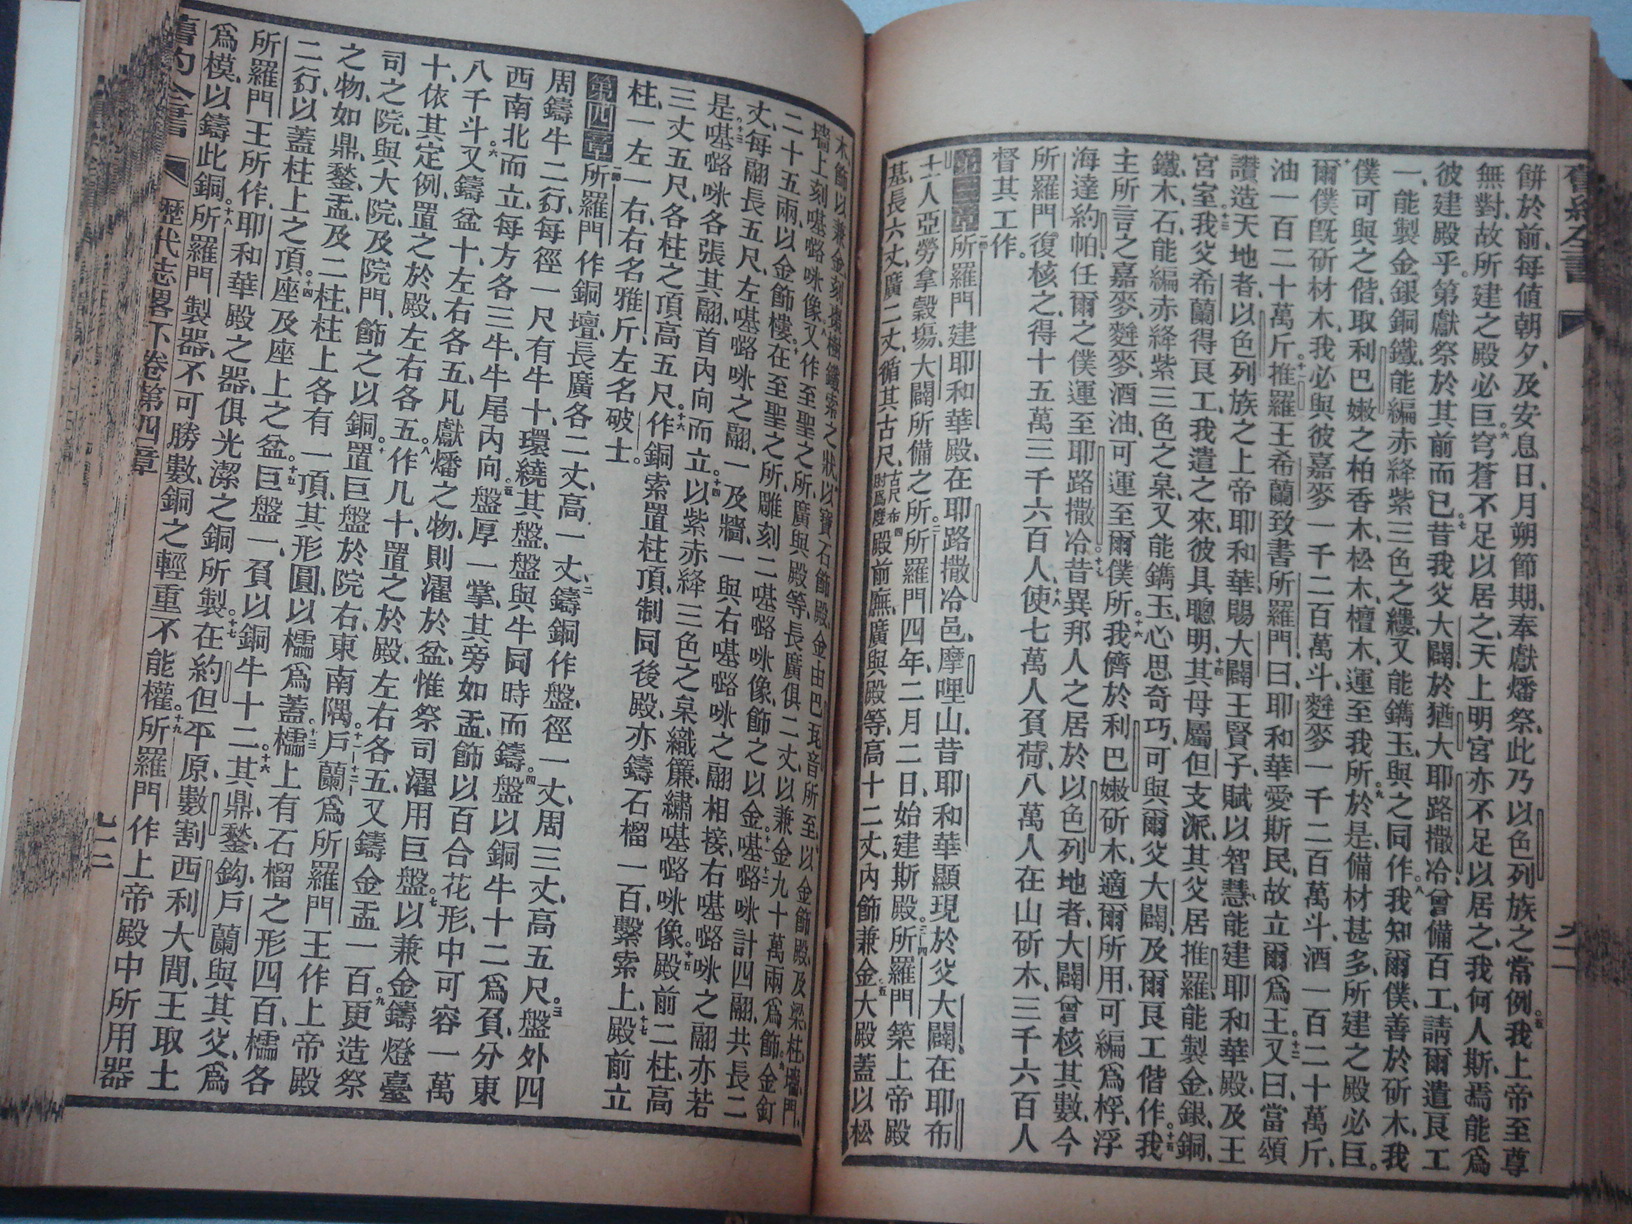 餅於前、每値朝夕、及安息日、月朔節期、奉獻燔祭、此乃以色列族之常例。五我上帝至尊
無對、故所建之殿必巨。六穹蒼不足以居之、天上明宮亦不足以居之、我何人斯、焉能爲
彼建殿乎。第獻祭於其前而已。七昔我父大闢、於猶大耶路撒冷、曾備百工、請爾遣艮工
一、能製金銀銅鐵、能編赤絳紫三色之縷、又能鐫玉、與之同作。八我知爾僕善於斫木、我
僕可與之偕、取利巴嫩之柏香木、松木、檀木、運至我所。九於是備材甚多、所建之殿必巨。
十爾僕旣斫材木、我必與彼嘉麥一千二百萬斗、麰麥一千二百萬斗、酒一百二十萬斤、
油一百二十萬斤。十一推羅王希蘭致書所羅門曰、耶和華愛斯民、故立爾爲王。十二又曰、當頌
讚造天地者、以色列族之上帝耶和華、賜大闢王賢子、賦以智慧、能建耶和華殿、及王
宮室。十三我父希蘭得艮工、我遣之來、彼具聰明。十四其母屬但支派、其父居推羅、能製金、銀、銅、
鐵、木、石、能編赤絳紫三色之枲、又能鐫玉、心思奇巧、可與爾父大闢、及爾艮工偕作。十五我
主所言之嘉麥、麰麥、酒油、可運至爾僕所。十六我儕於利巴嫩斫木、適爾所用、可編爲桴、浮
海達約帕、任爾之僕運至耶路撒冷。十七昔異邦人之居於以色列地者、大闢曾核其數、今
所羅門復核之、得十五萬三千六百人。十八使七萬人負荷、八萬人在山斫木、三千六百人
督其工作。
第三章一所羅門建耶和華殿、在耶路撒冷邑、摩哩山、昔耶和華顯現於父大闢、在耶布
士人亞勞拿穀塲、大闢所備之所。二所羅門四年、二月二日始建斯殿。三所羅門築上帝殿
基、長六丈、廣二丈、循其古尺、古尺布肘爲度四殿前廡廣與殿等、高十二丈、內飾兼金。五大殿蓋以松
木、飾以兼金、刻壞樹鏈索之狀。六以寶石飾殿、金由巴瓦音所至。七以金飾殿、及梁、柱、墻、門、
墻上刻𠼻𡀔咪像。八又作至聖之所、廣與殿等、長廣俱二丈、以兼金九十萬兩爲飾。九金釘
二十五兩、以金飾樓。十在至聖之所、雕刻二𠼻𡀔咪像、飾之以金。十一𠼻𡀔咪計四翮、共長二
丈、每翮長五尺、左𠼻𡀔咪之翮、一及牆、一與右𠼻𡀔咪之翮相接、右𠼻𡀔咪之翮亦若
是。十三𠼻𡀔咪各張其翮、首內向而立。十四以紫赤絳三色之枲織簾、繡𠼻𡀔咪像。十五殿前二柱、高
三丈五尺、各柱之頂高五尺。十六作銅索置柱頂、制同後殿、亦鑄石榴一百、繫索上。十七殿前立
柱、一左一右、右名雅斤、左名破士。
第四章一所羅門作銅壇、長廣各二丈、高一丈。二鑄銅作盤、徑一丈、周三丈、高五尺。三盤外四
周鑄牛二行、每徑一尺有牛十、環繞其盤、盤與牛同時而鑄。四盤以銅牛十二爲負、分東
西南北而立、每方各三牛、牛尾內向。五盤厚一掌、其旁如盂、飾以百合花形、中可容一萬
八千斗。六又鑄盆十、左右各五、凡獻燔之物、則濯於盆、惟祭司濯用巨盤。七以兼金鑄燈臺
十、依其定例、置之於殿、左右各五。八作几十、置之於殿、左右各五、又鑄金盂一百。九更造祭
司之院、與大院、及院門、飾之以銅。十置巨盤於院右、東南隅。十一戶蘭爲所羅門王作上帝殿
之物、如鼎、鍫、盂。十二及二柱、柱上各有一頂、其形圓、以檽爲蓋。十三檽上有石榴之形四百、檽各
二行、以蓋柱上之頂。十四座及座上之盆。十五巨盤一、負以銅牛十二。十六其鼎、鍫、鈎、戶蘭與其父、爲
所羅門王所作、耶和華殿之器、俱光潔之銅所製。十七在約但平原、數割西利大間、王取土
爲模、以鑄此銅。十八所羅門製器、不可勝數、銅之輕重不能權。十九所羅門作上帝殿中所用器
舊約全書 歷代志畧下卷第四章 九二
舊約全書 九一